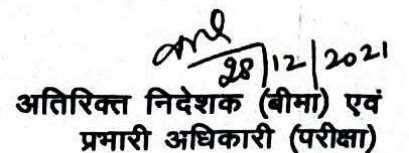 28/12/2021
अतिरिक्त निदेशक (बीमा) एवं
प्रभारी अधिकारी (परीक्षा)